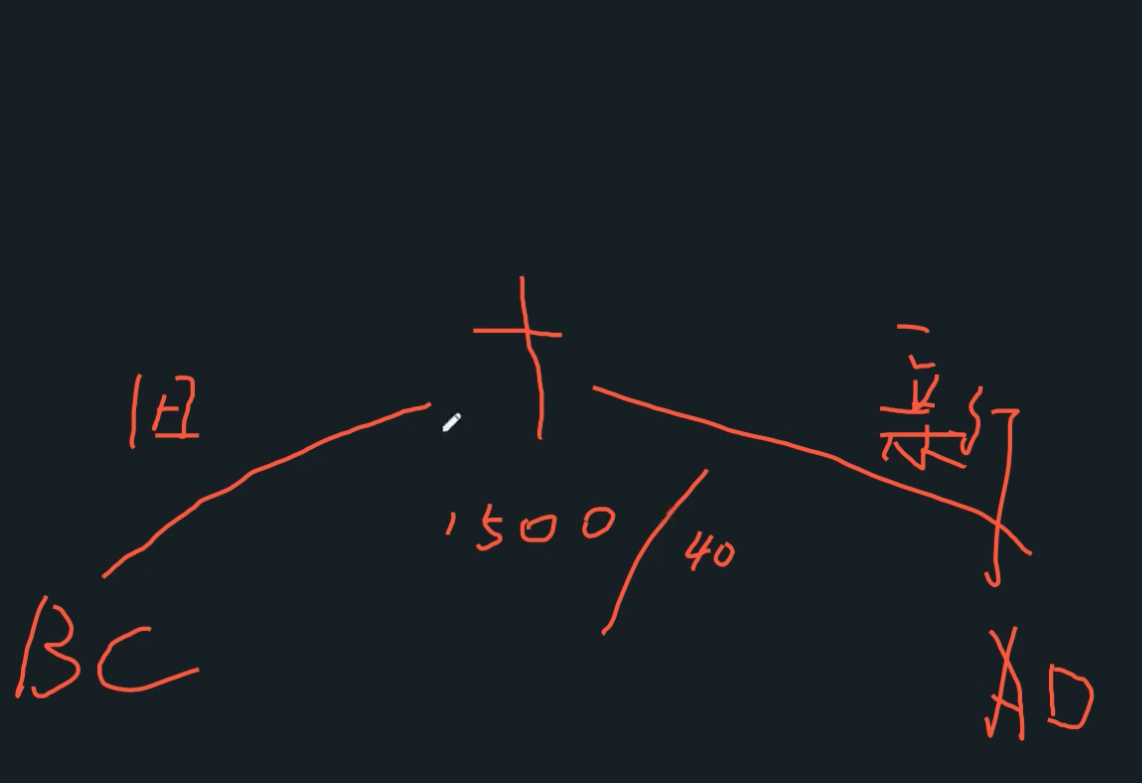 旧 新
1500/40
BC AD